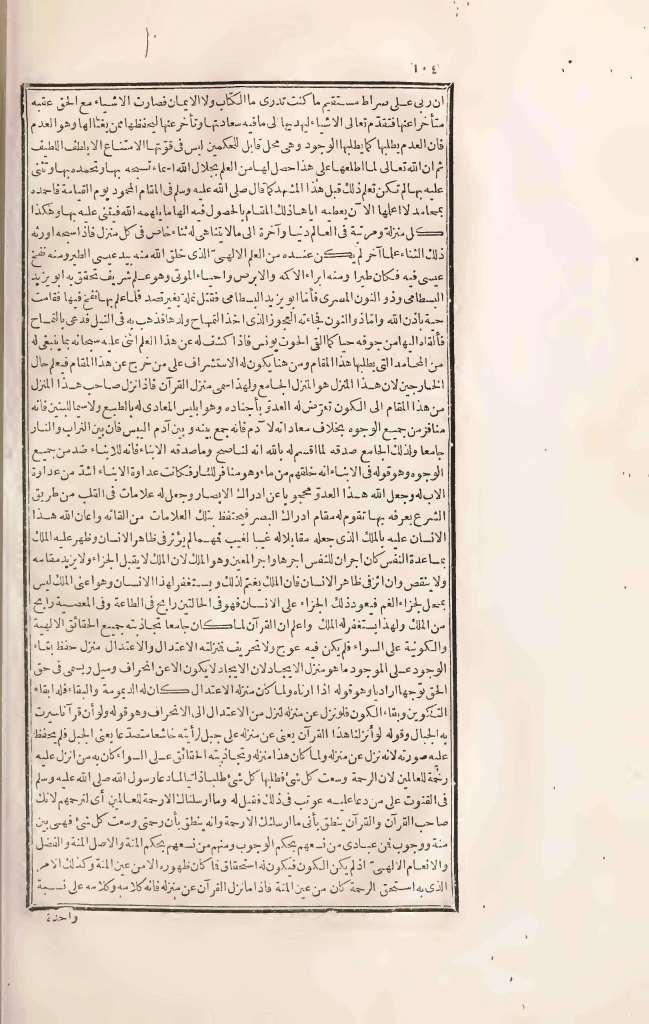 ١٠٤
ان ربى على صراط مستقيم ما كنت تدرى ما الكتاب ولا الايمان فصارت الاشياء مع الحق عقبه
متأخرا عنها فتقدم تعالى الاشياء ليهديها الى ما فيه سعادتها وتأخر عنها ليحفظها ممن يغتالها وهو العدم
فان العدم يطلبها كما يطلبها الوجود وهى محل قابل للحكمين ليس فى قوتها الامتناع الا بلطف اللطيف
ثم ان الله تعالى لما اطلعها على هذا حصل لها من العلم بجلال الله اسماء تسبحه بها وتحمده بها وتثنى
عليه بها لم تكن تعلم ذلك قبل هذا المشهد كما قال صلى الله عليه وسلم فى المقام المحمود يوم القيامة فاحمده
بمحامد لا اعلمها الآن يعطيه اياها ذلك المقام بالحصول فيه الها ما يلهمه الله فيثنى عليه بها وهكذا
كل منزلة ومرتبة فى العالم دنيا وآخرة الى ما لا يتناهى له ثناء خاص فى كل منزل فاذا سبحه اورثه
ذلك الثناء علما آخر لم يكن عنده من العلم الالهىّ الذى خلق الله منه بيد عيسى الطير ومنه نفخ
عيسى فيه فكان طيرا ومنه ابراء الاكمه والابرص واحياء الموتى وهو علم شريف تحقق به ابو يزيد
البسطامى وذو النون المصرى فأما ابو يزيد البسطامى فقتل نملة بغير قصد فلما علم بها نفخ فيها فقامت
حية باذن الله واما ذو النون فجاءته العجوز الذى اخذ التمساح ولدها فذهب به فى النيل فدعى بالتمساح
فألقاه اليها من جوفه حيا كما القى الحوت يونس فاذا كشف له عن هذا العلم اثنى عليه سبحانه بما ينبغى له
من المحامد التى يطلبها هذا المقام ومن هنا يكون له الاستشراف على من خرج عن هذا المقام فيعلم حال
الخارجين لان هذا المنزل هو المنزل الجامع ولهذا سمى منزل القرآن فاذا نزل صاحب هذا المنزل
من هذا المقام الى الكون تعرّض له العدوّ بأجناده وهو ابليس المعادى له بالطبع ولا سيما للبنين فانه
منافر من جميع الوجوه بخلاف معاداته لآدم فانه جمع بينه وبين آدم اليبس فان بين التراب والنار
جامعا ولذلك الجامع صدقه لما اقسم له بالله انه لناصح وما صدقه الابناء فانه للابناء ضد من جميع
الوجوه وهو قوله فى الابناء انه خلقهم من ماء وهو منافر للنار فكانت عداوة الابناء اشدّ من عداوة
الاب له وجعل الله هذا العدوّ محجوبا عن ادراك الابصار وجعل له علامات فى القلب من طريق
الشرع يعرفه بها تقوم له مقام ادراك البصر فيتحفظ بتلك العلامات من القائه واعان الله هذا
الانسان عليه بالملك الذى جعله مقابلا له غيبا لغيب فمهما لم يؤثر فى ظاهر الانسان وظهر عليه الملك
بمساعدة النفس كان اجر للنفس اجرها واجر المعين وهو الملك لان الملك لا يقبل الجزاء ولا يزيد مقامه
ولا ينقص وان اثر فى ظاهر الانسان فان الملك يغتم لذلك ويستغفر لهذا الانسان وهو اعنى الملك ليس
بمحل لجزاء الغم فيعود ذلك الجزاء على الانسان فهو فى الحالتين رابح فى الطاعة وفى المعصية رابح
من الملك ولهذا يستغفر له الملك واعلم ان القرآن لما كان جامعا تجاذبته جميع الحقائق الالهية
والكونية على السواء فلم يكن فيه عوج ولا تحريف فمنزلته الاعتدال والاعتدال منزل حفظ بقاء
الوجود على الموجود ما هو منزل الايجاد لان الايجاد لا يكون الا عن انحراف وميل ويسمى فى حق
الحق توجها اراديا وهو قوله اذا اردناه ولما كان منزلته الاعتدال كان له الديمومة والبقاء فله ابقاء
التكوين وبقاء الكون فلو نزل عن منزلته لنزل من الاعتدال الى الانحراف وهو قوله ولو أن قرآنا سيرت
به الجبال وقوله لو أنزلنا هذا القرآن يعنى عن منزله على جبل لرأيته خاشعا متصدعا يعنى الجبل فلم يحفظ
عليه صورته لانه نزل عن منزله ولما كان هذا منزله وتجاذبته الحقائق على السواء كان به من انزل عليه
رحمة للعالمين لان الرحمة وسعت كل شئ فطلبها كل شئ طلبا ذاتيا لما دعا رسول الله صلى الله عليه وسلم
فى القنوت على من دعا عليه عوتب فى ذلك فقيل له وما أرسلناك الا رحمة للعالمين أى لترحمهم لانك
صاحب القرآن والقرآن ينطق بأنى ما ارسلتك الا رحمة وانه ينطق بأن رحمتى وسعت كل شئ فهى بين
منة ووجوب فمن عبادى من تسعهم بحكم الوجوب ومنهم من تسعهم بحكم المنة والاصل المنة والفضل
والانعام الالهىّ اذ لم يكن الكون فيكون له استحقاق فما كان ظهوره الا من عين المنة وكذلك الامر
الذى به استحق الرحمة كان من عين المنة فاذا ما نزل القرآن عن منزله فانه كلامه وكلامه على نسبة
واحدة